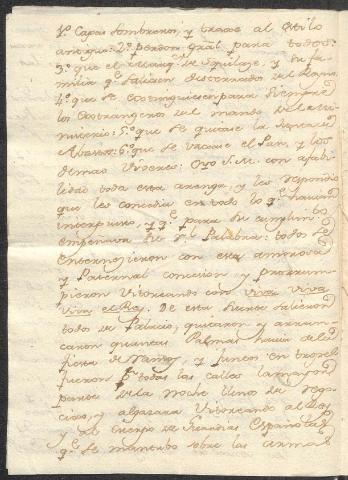 1º Capas Sombreros, y traxe al Estilo
antiguo: 2º perdon Gral para todos:
3º que el Marq.s de Squilaze, y su fa-
milia q.e saliesen desterrados del Reyno,
4º que se extinguiesen para siempre
los Extrangeros del mando del Mi-
nisterio: 5º que se quitase la Junta de
Abastos: 6º que se vaxase el Pan, y los
demas Viveres: Oyo S. M. con afabi-
lidad toda esta arenga, y les respondio
que les concedia en todo lo q.e havian
interpuesto, y q.e para su cumplim.to
empeñava su r.l Palabra: todos se
enternezieron con esta amorosa
y Paternal concesion, y prorrum-
pieron Vitoreando con viva viva
viva el Rey. De esta suerte salieron
todos de Palacio, quitaron, y arran-
caron quantas Palmas havia de la
fiesta de Ramos, y juntos en tropel
fueron p.r todas las calles la mayor
parte de la noche llenos de rego-
cixo, y algazara Vitoreando al Rey
y al cuerpo de Guardias Españolas
q.e se mantubo sobre las armas